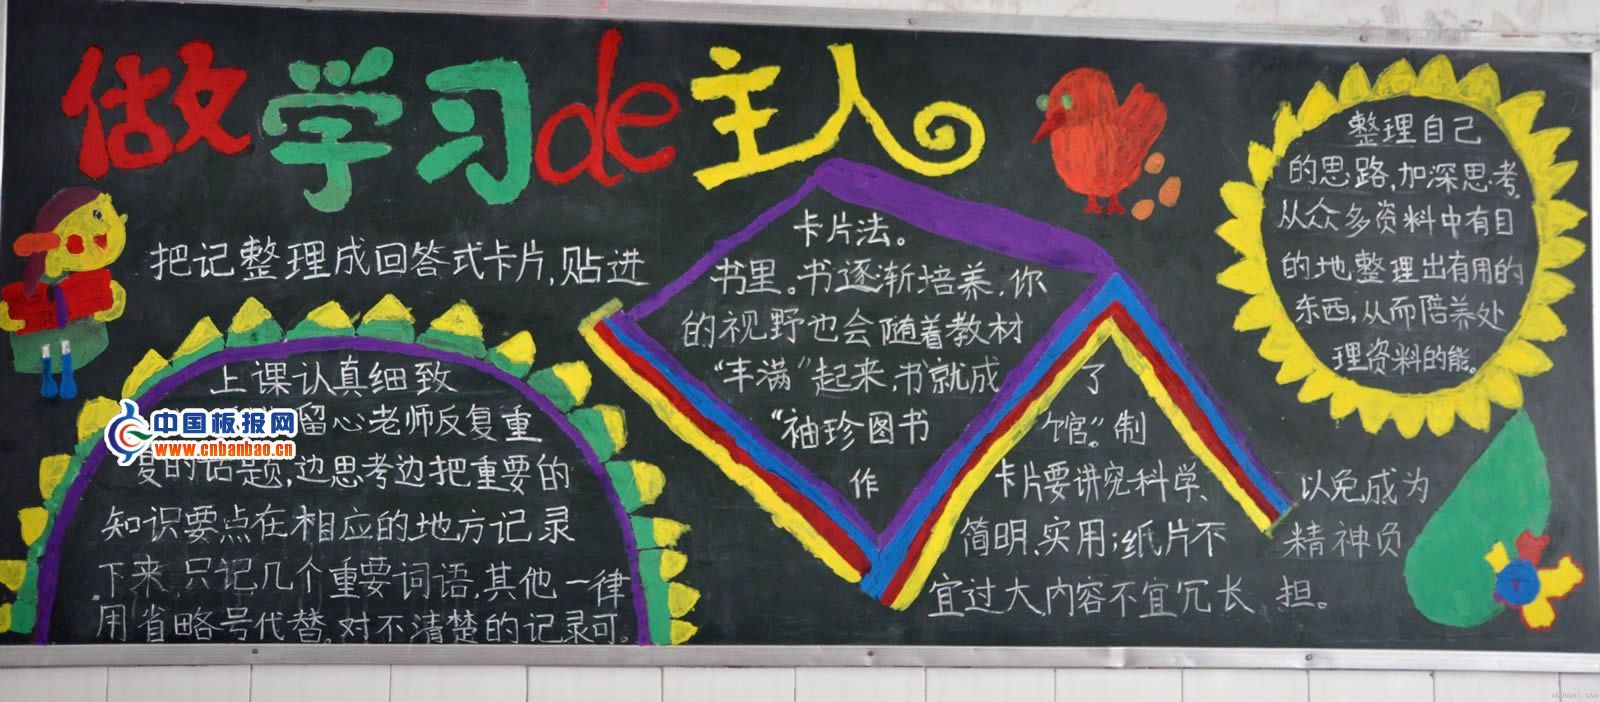 做学习de主人
把记整理成回答式卡片,贴进
上课认真细致
留心老师反复重
复的话题,边思考边把重要的
知识要点在相应的地方记录
下来,只记几个重要词语,其他一律
用省略号代替。对不清楚的记录可。
中国板报网
www.cnbanbao.cn
卡片法。
书里。书逐渐培养,你
的视野也会随着教材
“丰满”起来,书就成了
“袖珍图书馆”。制
作卡片要讲究科学、
简明、实用;纸片不
宜过大,内容不宜冗长
以免成为
精神负
担。
整理自己
的思路,加深思考,
从众多资料中有目
的地整理出有用的
东西,从而陪养处
理资料的能。